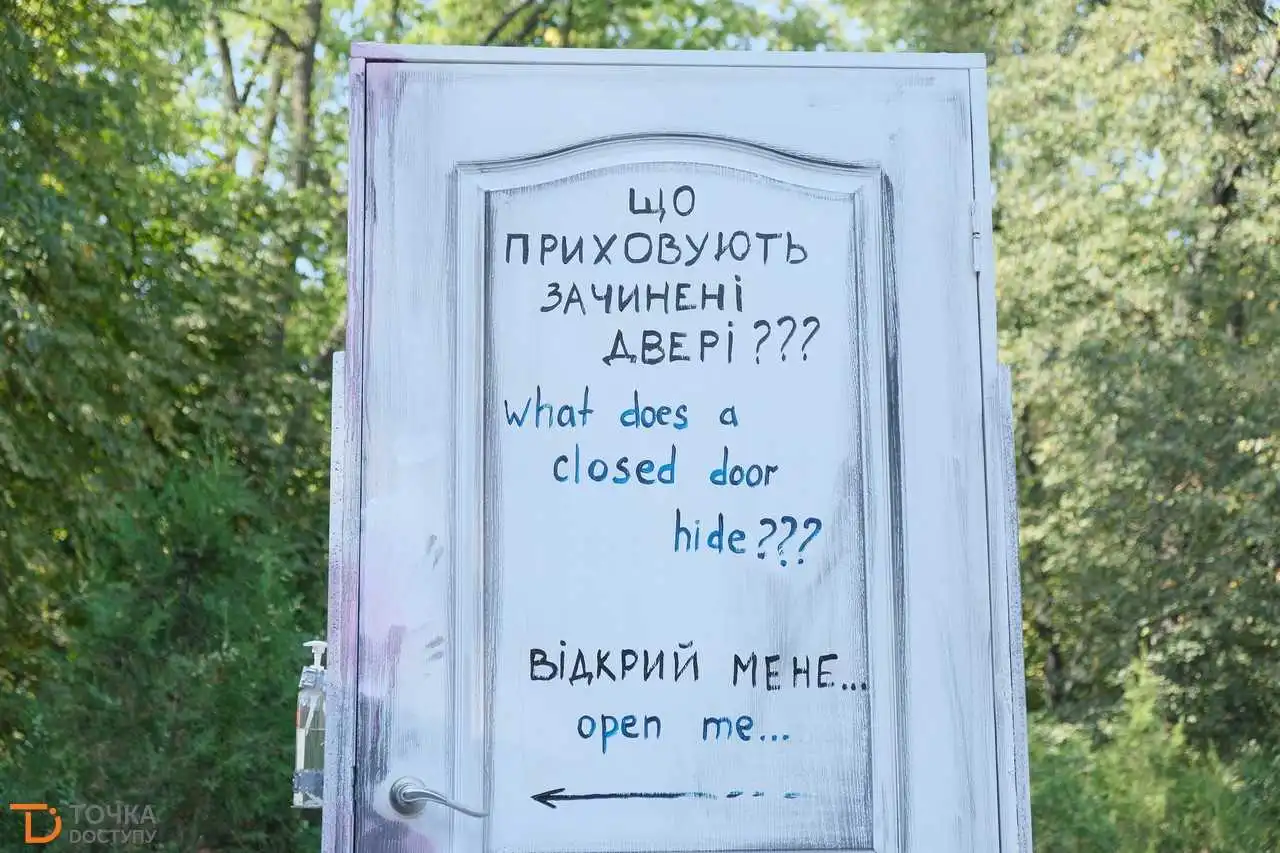 ЩО
ПРИХОВУЮТЬ
ЗАЧИНЕНІ
ДВЕРІ???
What does a
closed door
hide???
ВІДКРИЙ МЕНЕ...
open me...
ТОЧКА
ДОСТУПУ